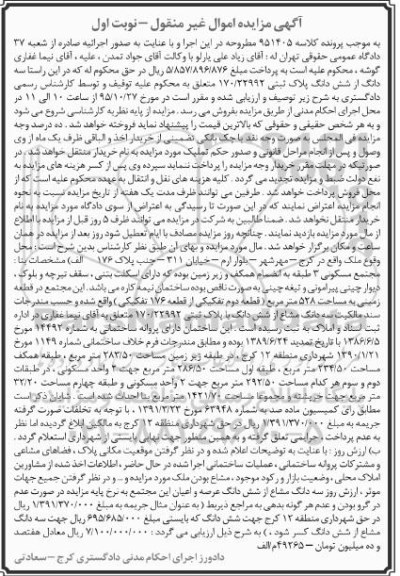 آگهی مزایده اموال غیر منقول – نوبت اول
به موجب پرونده کلاسه ۹۵۱۴۰۵ مطروحه در این اجرا و با عنایت به صدور اجرائیه صادره از شعبه ۳۷
دادگاه عمومی حقوقی تهران له : آقای زیاد علی یارلو با وکالت آقای جواد تمدن ، علیه ، آقای نیما غفاری
گوشه ، محکوم علیه است به پرداخت مبلغ ۵/۸۵۷/۸۹۶/۸۷۶ ریال در حق محکوم له که در این راستا سه
دانگ از شش دانگ پلاک ثبتی ۱۷۰/۲۲۹۹۲ متعلق به محکوم علیه توقیف و توسط کارشناس رسمی
دادگستری به شرح زیر توصیف و ارزیابی شده و مقرر است در مورخ ۹۵/۱۰/۲۷ از ساعت ۱۰ الی ۱۱ در
محل اجرای احکام مدنی از طریق مزایده بفروش می رسد . مزایده از پایه نظریه کارشناسی شروع می شود
و به هر شخص حقیقی و حقوقی که بالاترین قیمت را پیشنهاد نماید فروخته خواهد شد . ده درصد وجه
مزایده فی المجلس به صورت وجه نقد یا چک بانکی تضمینی از خریدار اخذ و الباقی ظرف یک ماه از وی
وصول و پس از انجام مراحل قانونی و صدور حکم تملیک مورد مزایده به نام خریدار منتقل خواهد شد . در
صورتیکه در مهلت مقرر خریدار وجه مزایده را پرداخت ننماید سپرده وی پس از کسر هزینه های مزایده به
نفع دولت ضبط و مزایده تجدید می گردد . کلیه هزینه های نقل و انتقال به عهده محکوم علیه است که از
محل فروش پرداخت خواهد شد . طرفین می توانند ظرف مدت یک هفته از تاریخ مزایده نسبت به نحوه
انجام مزایده اعتراض نمایند که در این صورت تا رسیدگی به اعتراض از سوی دادگاه مورد مزایده به نام
خریدار منتقل نخواهد شد . ضمنا طالبین به شرکت در مزایده می توانند ظرف ۵ روز قبل از مزایده با اطلاع
از مال مورد مزایده بازدید نمایند . چنانچه روز مزایده مصادف با ایام تعطیل شود روز بعد از مزایده در همان
ساعت و مکان برگزار خواهد شد . مال مورد مزایده و بهای آن طبق نظر کارشناس بدین شرح است : محل
وقوع ملک واقع در کرج – مهرشهر – بلوار ارم – خیابان ۳۱۱ – جنب پلاک ۱۷۶ الف) مشخصات بنا :
مجتمع مسکونی ۳ طبقه به انضمام همکف و زیر زمین بوده که دارای اسکلت بتنی ، سقف تیرچه و بلوک ،
دیوار چینی پیرامونی و تیغه چینی به صورت ناقص بوده ساختمان نیمه کاره می باشد . این مجتمع در قطعه
زمینی به مساحت ۵۲۸ متر مربع ( قطعه دوم تفکیکی از قطعه ۱۷۶ تفکیکی ) واقع شده و حسب مندرجات
سند مالکیت سه دانگ مشاع از شش دانگ با پلاک ثبتی ۱۷۰/۲۲۹۹۲ متعلق به آقای نیما غفاری در اداره
ثبت اسناد و املاک به ثبت رسیده است . این ساختمان دارای پروانه ساختمانی به شماره ۱۴۴۹۳ مورخ
۱۳۸۶/۶/۵ با تاریخ تمدید ۱۳۸۹/۶/۲۴ بوده و مطابق مندرجات فرم خلاف ساختمانی شماره ۱۱۴۹ مورخ
۱۳۹۱/۱/۲۱ شهرداری منطقه ۱۲ کرج ، در طبقه زیر زمین مساحت ۲۸۲/۵۰ متر مربع ، طبقه همکف
مساحت ۲۳۴/۵۰ متر مربع ، طبقه اول مساحت ۲۸۶/۵۰ متر مربع جهت ۲ واحد مسکونی ، در طبقات
دوم و سوم هر کدام مساحت ۲۹۲/۵۰ متر مربع جهت ۲ واحد مسکونی و طبقه چهارم مساحت ۳۲/۲۰
متر مربع جهت خرپشته و مجموعا مساحت ۱۴۲۱/۷۰ متر مربع بنا احداث شده می باشد . شایان ذکر است
مطابق رای کمیسیون ماده صد به شماره ۶۳۹۴۸ مورخ ۱۳۹۱/۲/۲۳ ، با توجه به تخلفات صورت گرفته
جریمه به مبلغ ۱/۳۹۱/۳۷۰/۰۰۰ ریال در حق شهرداری منطقه ۱۲ کرج به مالکین ابلاغ گردیده اما نظر
به عدم پرداخت ، جرایمی تعلق گرفته و به همین منظور جهت نهایی بایستی از شهرداری استعلام گردد .
ب) ارزش روز : با عنایت به توضیحات اعلام شده و در نظر گرفتن موقعیت مکانی پلاک ، فضاهای مشاعی
و مشترکات پروانه ساختمانی ، عملیات ساختمانی اجرا شده در حال حاضر ، اطلاعات اخذ شده از مشاورین
املاک محلی ، وضعیت بازار و رکود موجود ، مشاع بودن ملک مورد مزایده و ... و در نظر گرفتن جمیع جهات
موثر ، ارزش روز سه دانگ مشاع از شش دانگ عرصه و اعیان این مجتمع به نرخ پایه مزایده در صورت عدم
در گرو بودن و عدم هر گونه بدهی به مراجع ذیربط ( به عنوان مثال جریمه به مبلغ ۱/۳۹۱/۳۷۰/۰۰۰ ریال
در حق شهرداری منطقه ۱۲ کرج جهت شش دانگ که بایستی مبلغ ۶۹۵/۶۸۵/۰۰۰ ریال جهت سه دانگ
مشاع از شش دانگ کسر شود ، ) به شرح ذیل ارزیابی می گردد : ۷/۱۰۰/۰۰۰/۰۰۰ ریال معادل هفتصد
و ده میلیون تومان – ۴۹۲۶۵/م الف
دادورز اجرای احکام مدنی دادگستری کرج – سعادتی